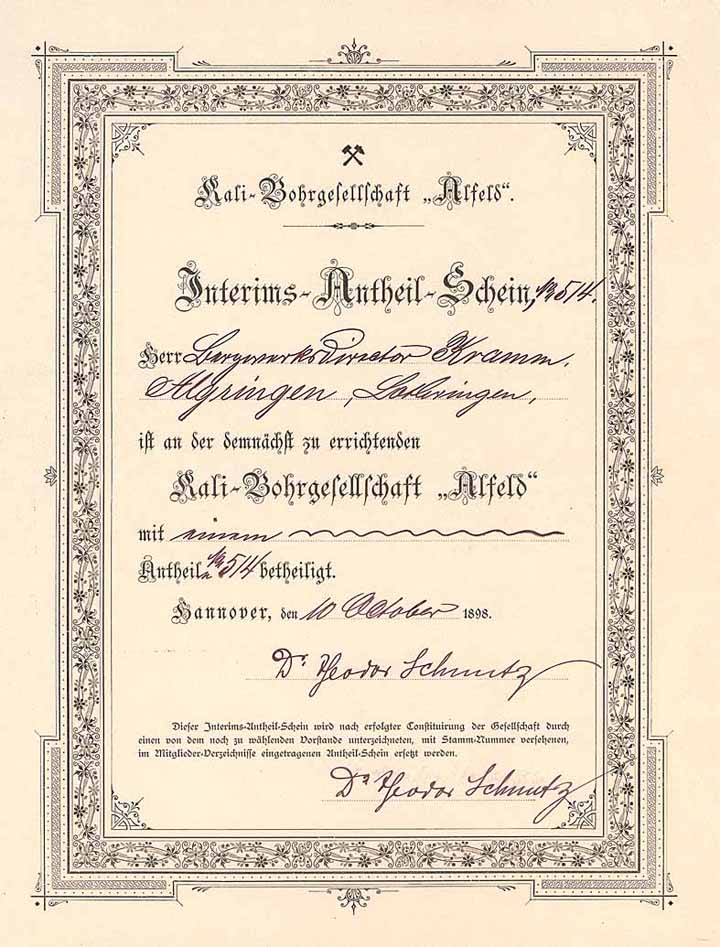 Kali-Bohrgesellschaft „Alfeld“.
Interims-Antheil-Schein, № 514.
Herr BergwerksDirector Kramm,
Algringen, Lothringen,
ist an der demnächst zu errichtenden
Kali-Bohrgesellschaft „Alfeld“
mit einem
Antheil № 514 betheiligt.
Hannover, den 10 October 1898.
Dr. Theodor Schmutz
Dieser Interims-Antheil-Schein wird nach erfolgter Constituirung der Gesellschaft durch
einen von dem noch zu wählenden Vorstande unterzeichneten, mit Stamm-Nummer versehenen,
im Mitglieder-Verzeichnisse eingetragenen Antheil-Schein ersetzt werden.
Dr. Theodor Schmutz